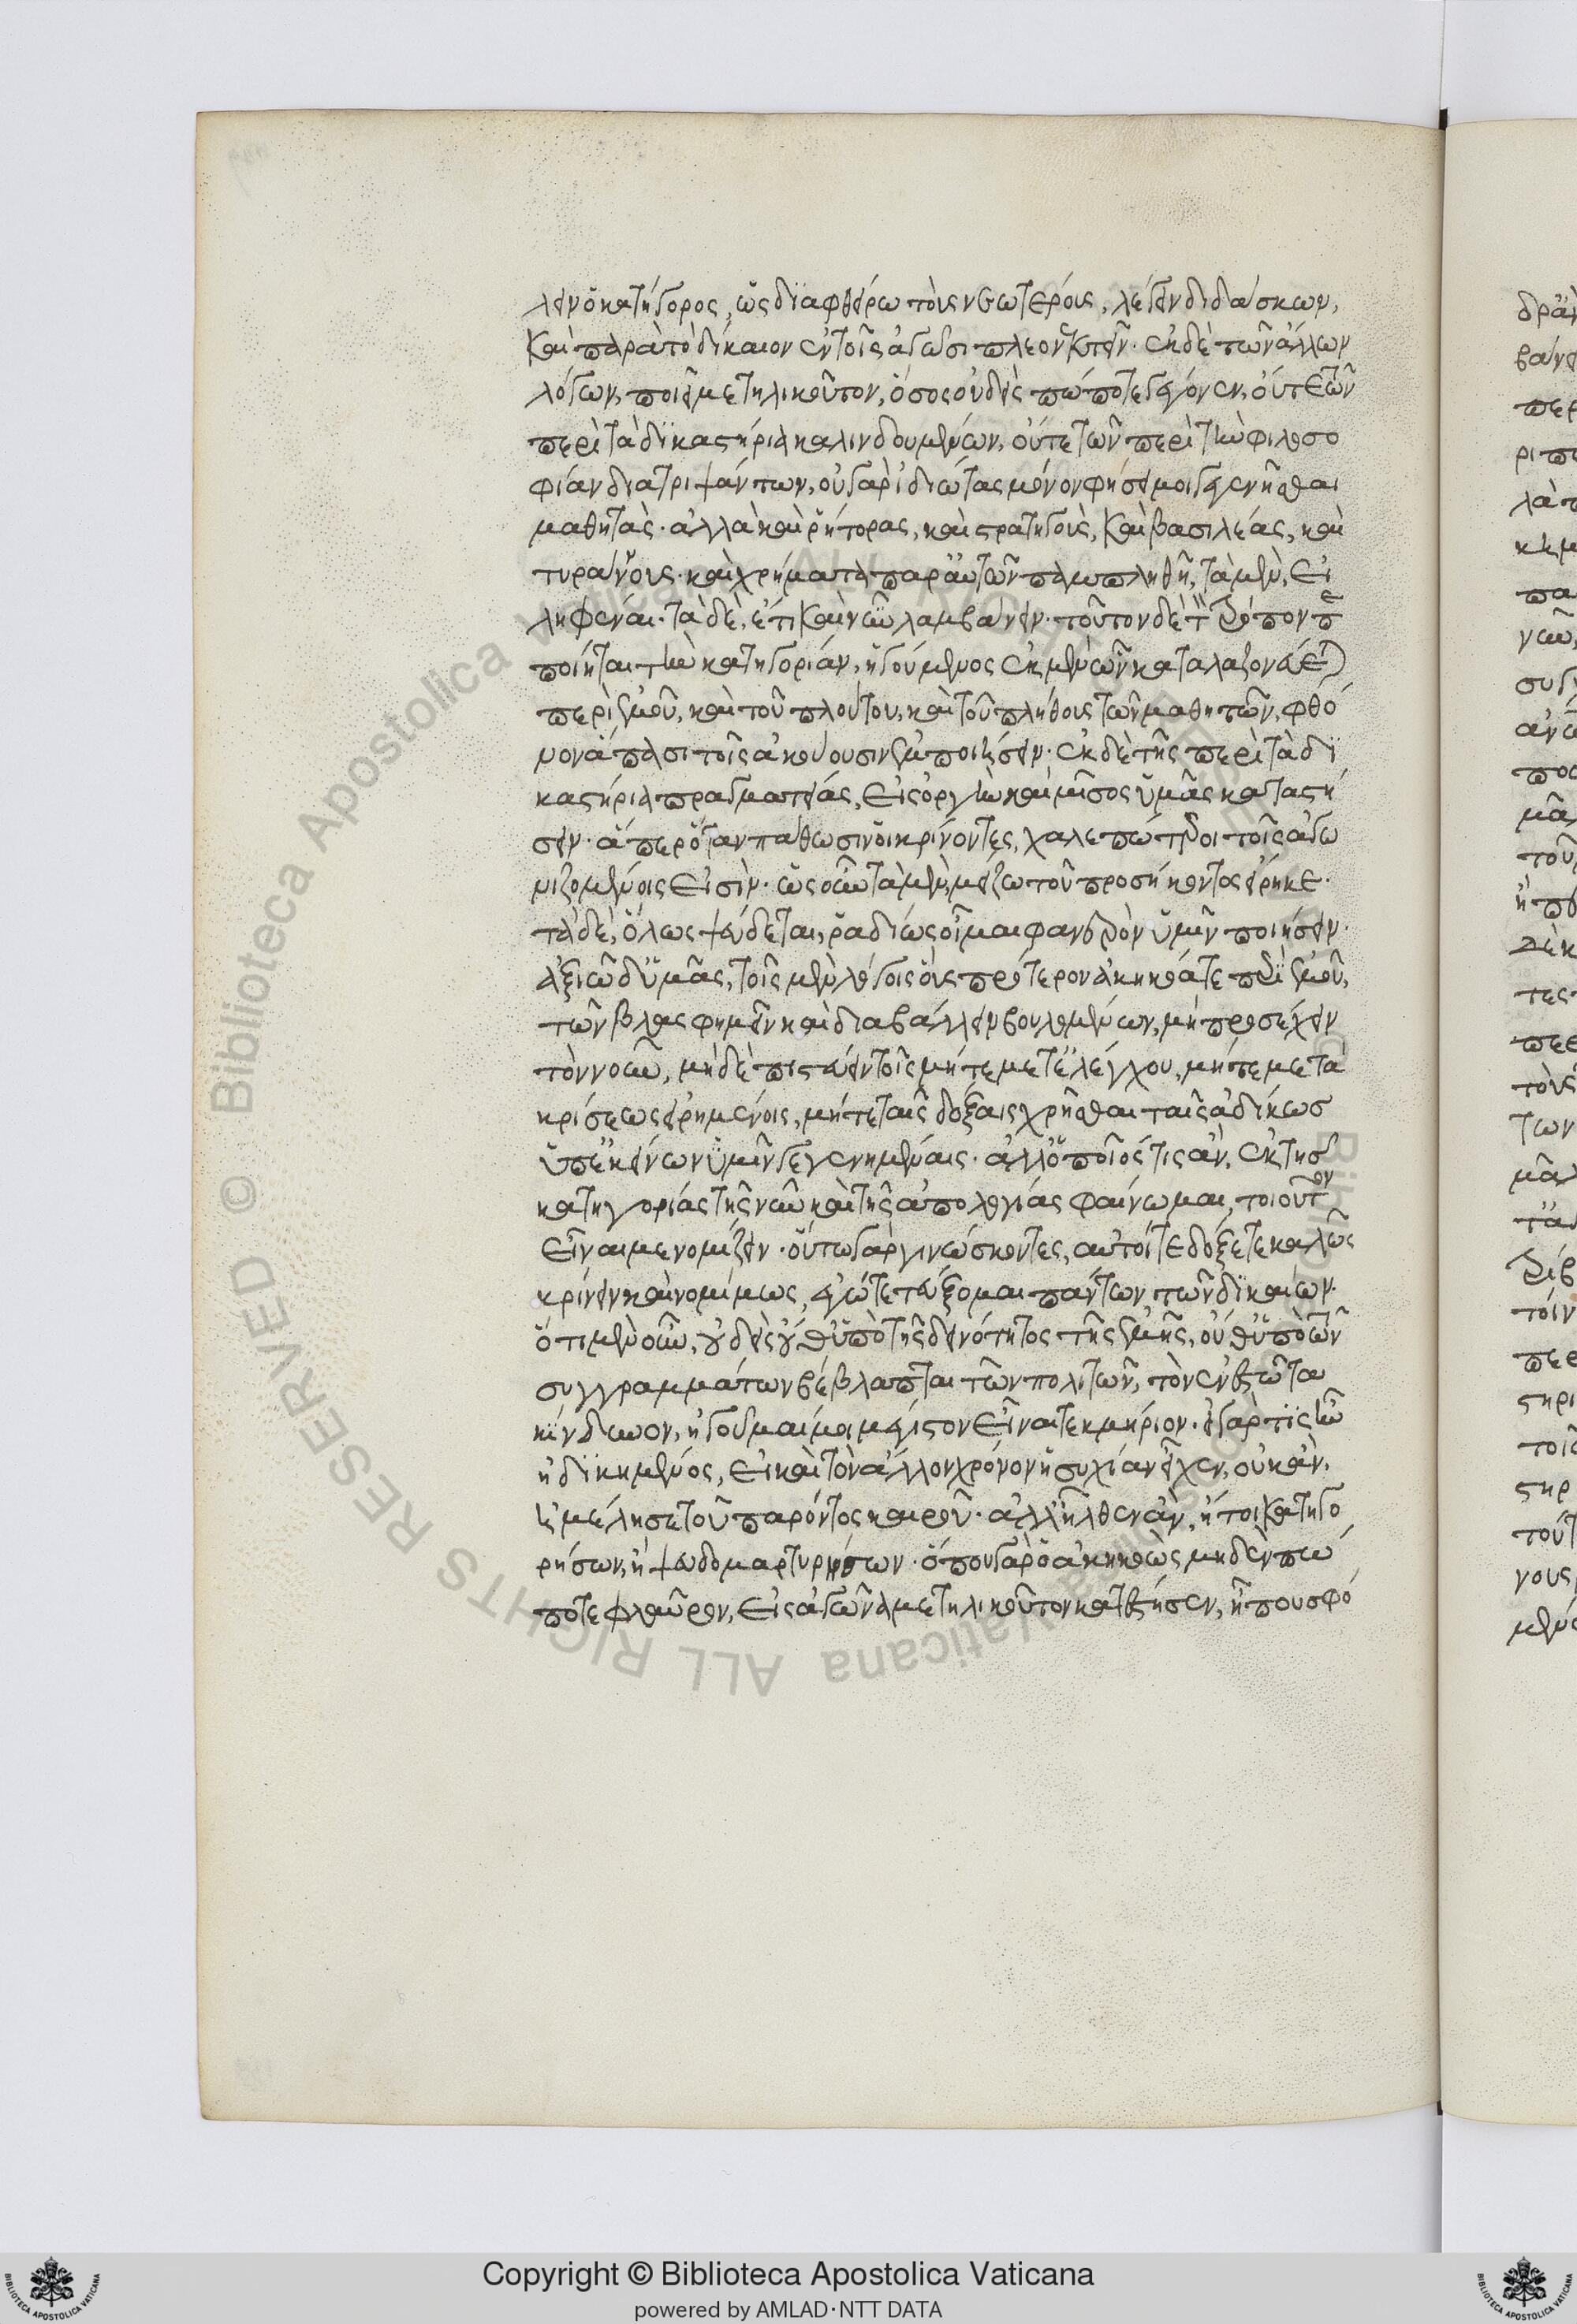 λειν ὁ κατήγορος, ὡς διαφθείρω τοὺς νεωτέρους, λέγειν διδάσκων,
καὶ παρὰ τὸ δίκαιον ἐν τοῖς ἀγῶσι πλεονεκτεῖν· ἐκ δὲ τῶν ἄλλων
λόγων, ποιεῖ με τηλικοῦτον, ὅσος οὐδεὶς πώποτε γέγονεν, οὔτε τῶν
περὶ τὰ δικαστήρια καλινδουμένων, οὔτε τῶν περὶ τὴν φιλοσο
φίαν διατριψάντων, οὐ γὰρ ἰδιώτας μόνον φησί μοι γεγενῆσθαι
μαθητάς· ἀλλὰ καὶ ῥήτορας, καὶ στρατηγοὺς, καὶ βασιλέας, καὶ
τυράννους· καὶ χρήματα παρ' αὐτῶν παμπληθῆ, τὰ μὲν, εἰ
ληφέναι· τὰ δὲ, ἔτι καὶ νῦν λαμβάνειν· τοῦτον δὲ τὸν τρόπον πε
ποίηται τὴν κατηγορίαν, ἡγούμενος ἐκ μὲν ὧν καταλαζονεύεται
περὶ ἐμοῦ, καὶ τοῦ πλούτου, καὶ τοῦ πλήθους τῶν μαθητῶν, φθό
νον ἅπασι τοῖς ἀκούουσιν ἐμποιήσειν· ἐκ δὲ τῆς περὶ τὰ δι
καστήρια πραγματείας, εἰς ὀργὴν καὶ μῖσος ὑμᾶς καταστή
σειν· ἅπερ ὅταν πάθωσιν οἱ κρίνοντες, χαλεπώτεροι τοῖς ἀγω
νιζομένοις εἰσίν· ὡς οὖν τὰ μὲν, μείζω τοῦ προσήκοντος εἴρηκε·
τὰ δὲ, ὅλως ψεύδεται, ῥαδίως οἶμαι φανερὸν ὑμῖν ποιήσειν·
ἀξιῶ δ' ὑμᾶς, τοῖς μὲν λόγοις οἷς πρότερον ἀκηκόατε περὶ ἐμοῦ,
τῶν βλασφημεῖν καὶ διαβάλλειν βουλομένων, μὴ προσέχειν
τὸν νοῦν, μηδὲ πιστεύειν τοῖς μήτε μετ' ἐλέγχου, μήτε μετὰ
κρίσεως εἰρημένοις, μήτε ταῖς δόξαις χρῆσθαι ταῖς ἀδίκως
ὑπ' ἐκείνων ὑμῖν γεγενημέναις· ἀλλ' ὁποῖός τις ἂν, ἐκ τῆς
κατηγορίας τῆς νῦν καὶ τῆς ἀπολογίας φαίνωμαι, τοιοῦτον
εἶναί με νομίζειν· οὕτω γὰρ γινώσκοντες, αὐτοί τε δόξετε καλῶς
κρίνειν καὶ νομίμως, ἐγώ τε τεύξομαι πάντων τῶν δικαίων·
ὅτι μὲν οὖν, οὐδεὶς οὔθ' ὑπὸ τῆς δεινότητος τῆς ἐμῆς, οὔθ' ὑπὸ τῶν
συγγραμμάτων βέβλαπται τῶν πολιτῶν, τὸν ἐνεστῶτα
κίνδυνον, ἡγοῦμαί μοι μέγιστον εἶναι τεκμήριον· εἰ γάρ τις ἦν
ἠδικημένος, εἰ καὶ τὸν ἄλλον χρόνον ἡσυχίαν εἶχεν, οὐκ ἂν,
ἠμέλησε τοῦ παρόντος καιροῦ· ἀλλ' ἦλθεν ἂν, ἤτοι κατηγο
ρήσων, ἢ ψευδομαρτυρήσων· ὅπου γὰρ ὁ ἀκηκοὼς μηδὲν πώ
ποτε φλαῦρον, εἰς ἀγῶνά με τηλικοῦτον κατέστησεν, ἦπου σφό
Copyright © Biblioteca Apostolica Vaticana
powered by AMLAD·NTT DATA